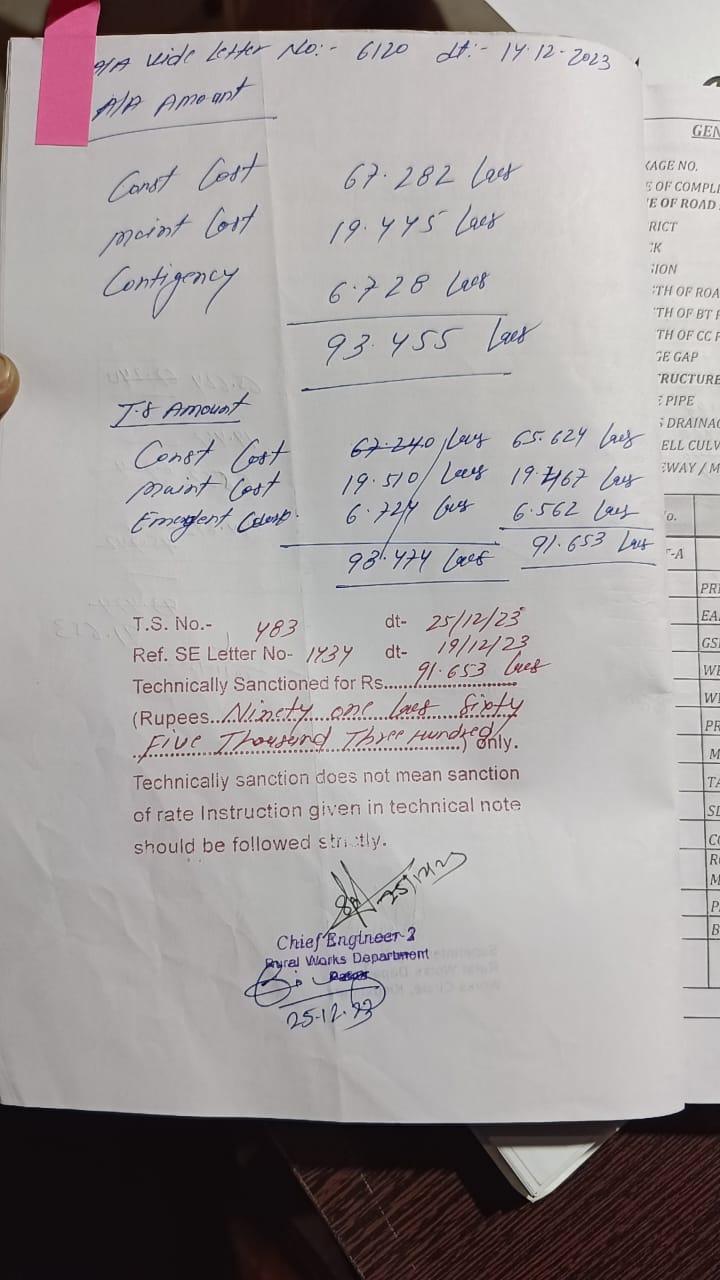 A/A vide letter No:- 6120 dt:- 14.12.2023
A/A Amount
Const Cost 67.282 lacs
maint Cost 19.445 lacs
Contigency 6.728 lacs
93.455 lacs
T.S Amount
Const Cost 67.240 lacs 65.624 lacs
maint Cost 19.510 lacs 19.467 lacs
Emergent 6.724 lacs 6.562 lacs
93.474 lacs 91.653 lacs
T.S. No.- 483 dt- 25/12/23
Ref. SE Letter No- 1434 dt- 19/12/23
Technically Sanctioned for Rs..... 91.653 lacs
(Rupees.. Ninety one lacs Sixty
Five Thousand Three Hundred) only.
Technically sanction does not mean sanction
of rate Instruction given in technical note
should be followed strictly.
25/12/23
Chief Engineer-2
Rural Works Department
25.12.23
GEN
KAGE NO.
E OF COMPLE
E OF ROAD
RICT
CK
SION
TH OF ROA
TH OF BT P
TH OF CC P
GE GAP
RUCTURE
E PIPE
S DRAINAG
ELL CULV
EWAY / M
o.
T-A
PRE
EA
GS
WE
WI
PR
M
TA
SI
CO
RO
M
P
B